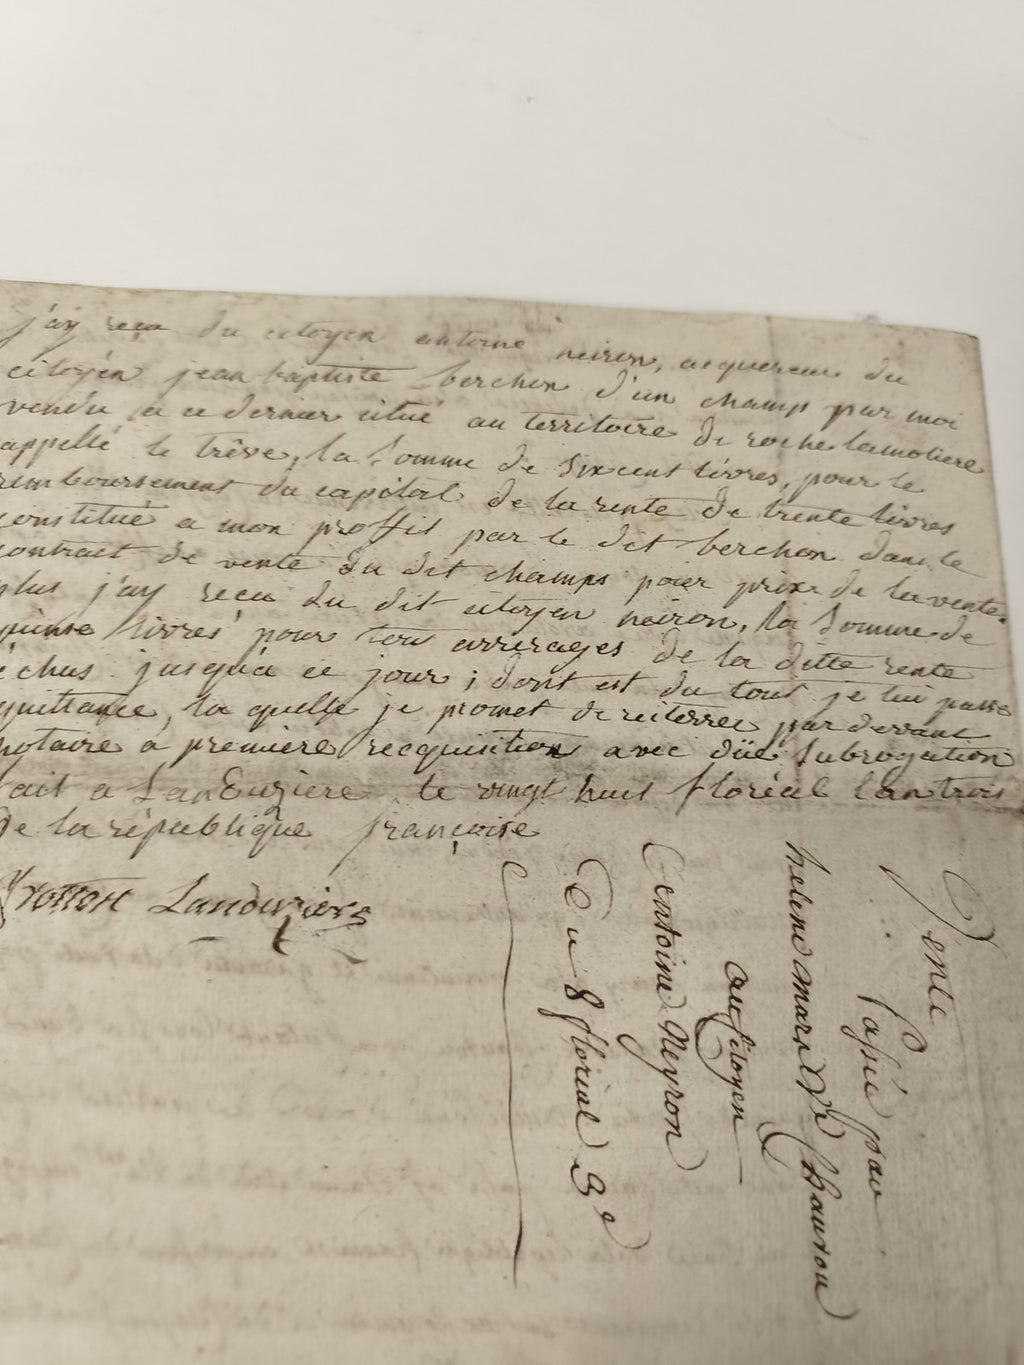 j'ay reçu du citoyen antoine neiron, acquereur du
citoyén jean baptiste berchon d'un champ par moi
vendu a ce dernier situé au territoire de roche lamoliere
appellé le trêve, la somme de six cent livres, pour le
remboursement du capital de la rente de trente livres
constitué a mon proffit par le dit berchon dans le
contrait de vente du dit champs poier prix de la vente.
plus j'ay reçu du dit citoyen neiron, la somme de
quinse livres pour tou arrerages de la ditte rente
échus jusqu'à ce jour; dont est du tout je lui passe
quittance, la quelle je promet de reiterrer par devant
notaire à première recquisition avec düe subrogation
fait a Landuziere le vingt huit floréal l'an trois
de la république françoise
Landuziere
Vente
passée par
helene marie
au Citoyen
antoine Neyron
Du 8 floréal 3e